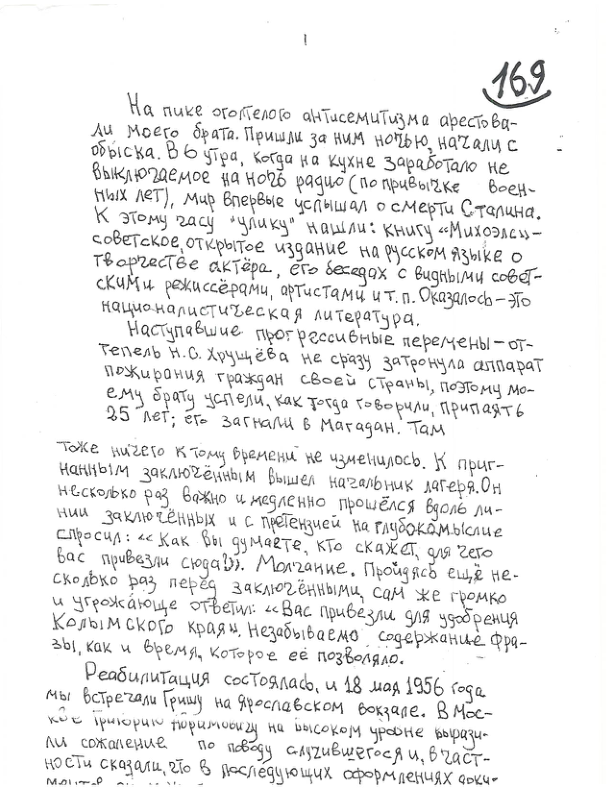 1
169
На пике оголтелого антисемитизма арестова-
ли моего брата. Пришли за ним ночью, начали с
обыска. В 6 утра, когда на кухне заработало не
выключаемое на ночь радио (по привычке воен-
ных лет), мир впервые услышал о смерти Сталина.
К этому часу "улику" нашли: книгу «Михоэлс» –
советское, открытое издание на русском языке о
творчестве актёра, его беседах с видными совет-
скими режиссёрами, артистами и т.п. Оказалось – это
националистическая литература.
Наступавшие прогрессивные перемены – от-
тепель Н.С. Хрущёва не сразу затронула аппарат
пожирания граждан своей страны, поэтому мо-
ему брату успели, как тогда говорили, припаять
25 лет; его загнали в Магадан. Там
тоже ничего к тому времени не изменилось. К приг-
нанным заключённым вышел начальник лагеря. Он
несколько раз важно и медленно прошёлся вдоль ли-
нии заключённых и с претензией на глубокомыслие
спросил: «Как вы думаете, кто скажет, для чего
вас привезли сюда?». Молчание. Пройдясь ещё не-
сколько раз перед заключёнными, сам же громко
и угрожающе ответил: «Вас привезли для удобрения
Колымского края». Незабываемо содержание фра-
зы, как и время, которое её позволяло.
Реабилитация состоялась, и 18 мая 1956 года
мы встречали Гришу на Ярославском вокзале. В Мос-
кве Григорию на высоком уровне вырази-
ли сожаление по поводу случившегося и, в част-
ности сказали, что в последующих оформлениях доку-